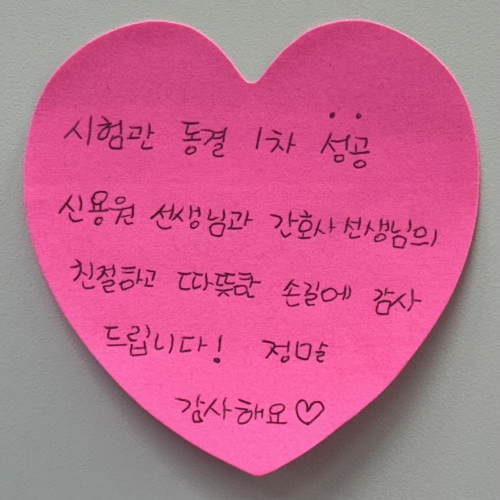 시험관 동결 1차 성공
신용원 선생님과 간호사선생님의
친절하고 따뜻한 손길에 감사
드립니다! 정말
감사해요♡